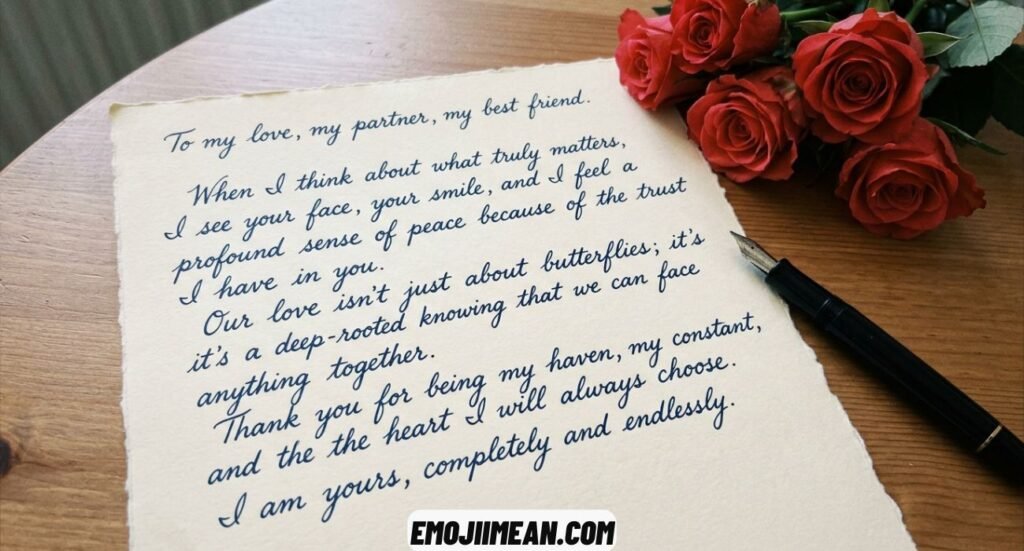 To my love, my partner, my best friend.
When I think about what truly matters,
I see your face, your smile, and I feel a
profound sense of peace because of the trust
I have in you.
Our love isn't just about butterflies; it's
it's a deep-rooted knowing that we can face
anything together.
Thank you for being my haven, my constant,
and the the heart I will always choose.
I am yours, completely and endlessly.
EMOJIIMEAN.COM